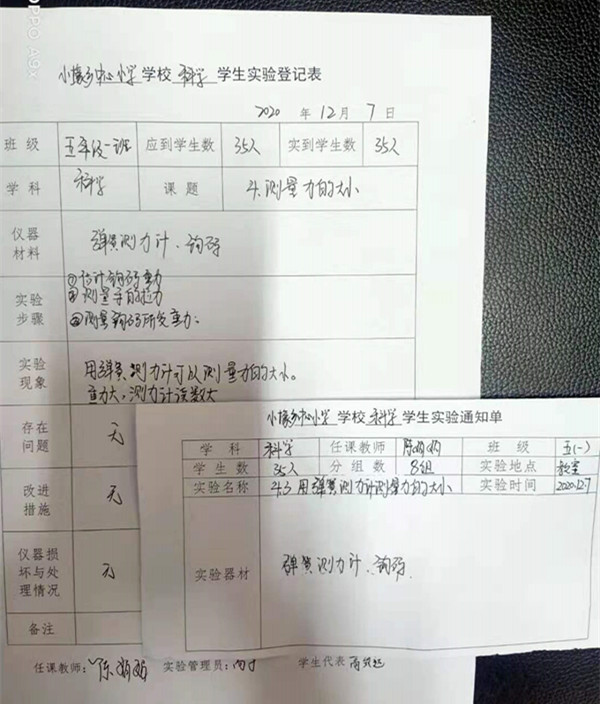 OPPO A9x
中心小学 学校 科学 学生实验登记表
2020 年 12 月 7 日
班级 五年级一班 应到学生数 35人 实到学生数 35人
学科 科学 课题 4.测量力的大小
仪器材料 弹簧测力计、钩码
实验步骤 ①估计钩码重力
②测量手的拉力
③测量钩码所受重力
实验现象 用弹簧测力计可以测量力的大小。
重力大,测力计读数大
存在问题 无
改进措施 无
仪器损坏与处理情况 无
备注
任课教师: 陈娟娟 实验管理员: 学生代表
中心小学 学校 科学 学生实验通知单
学科 科学 任课教师 陈娟娟 班级 五(一)
学生数 35人 分组数 8组 实验地点 教室
实验名称 4.3 用弹簧测力计测量力的大小 实验时间 2020.12.7
实验器材 弹簧测力计、钩码